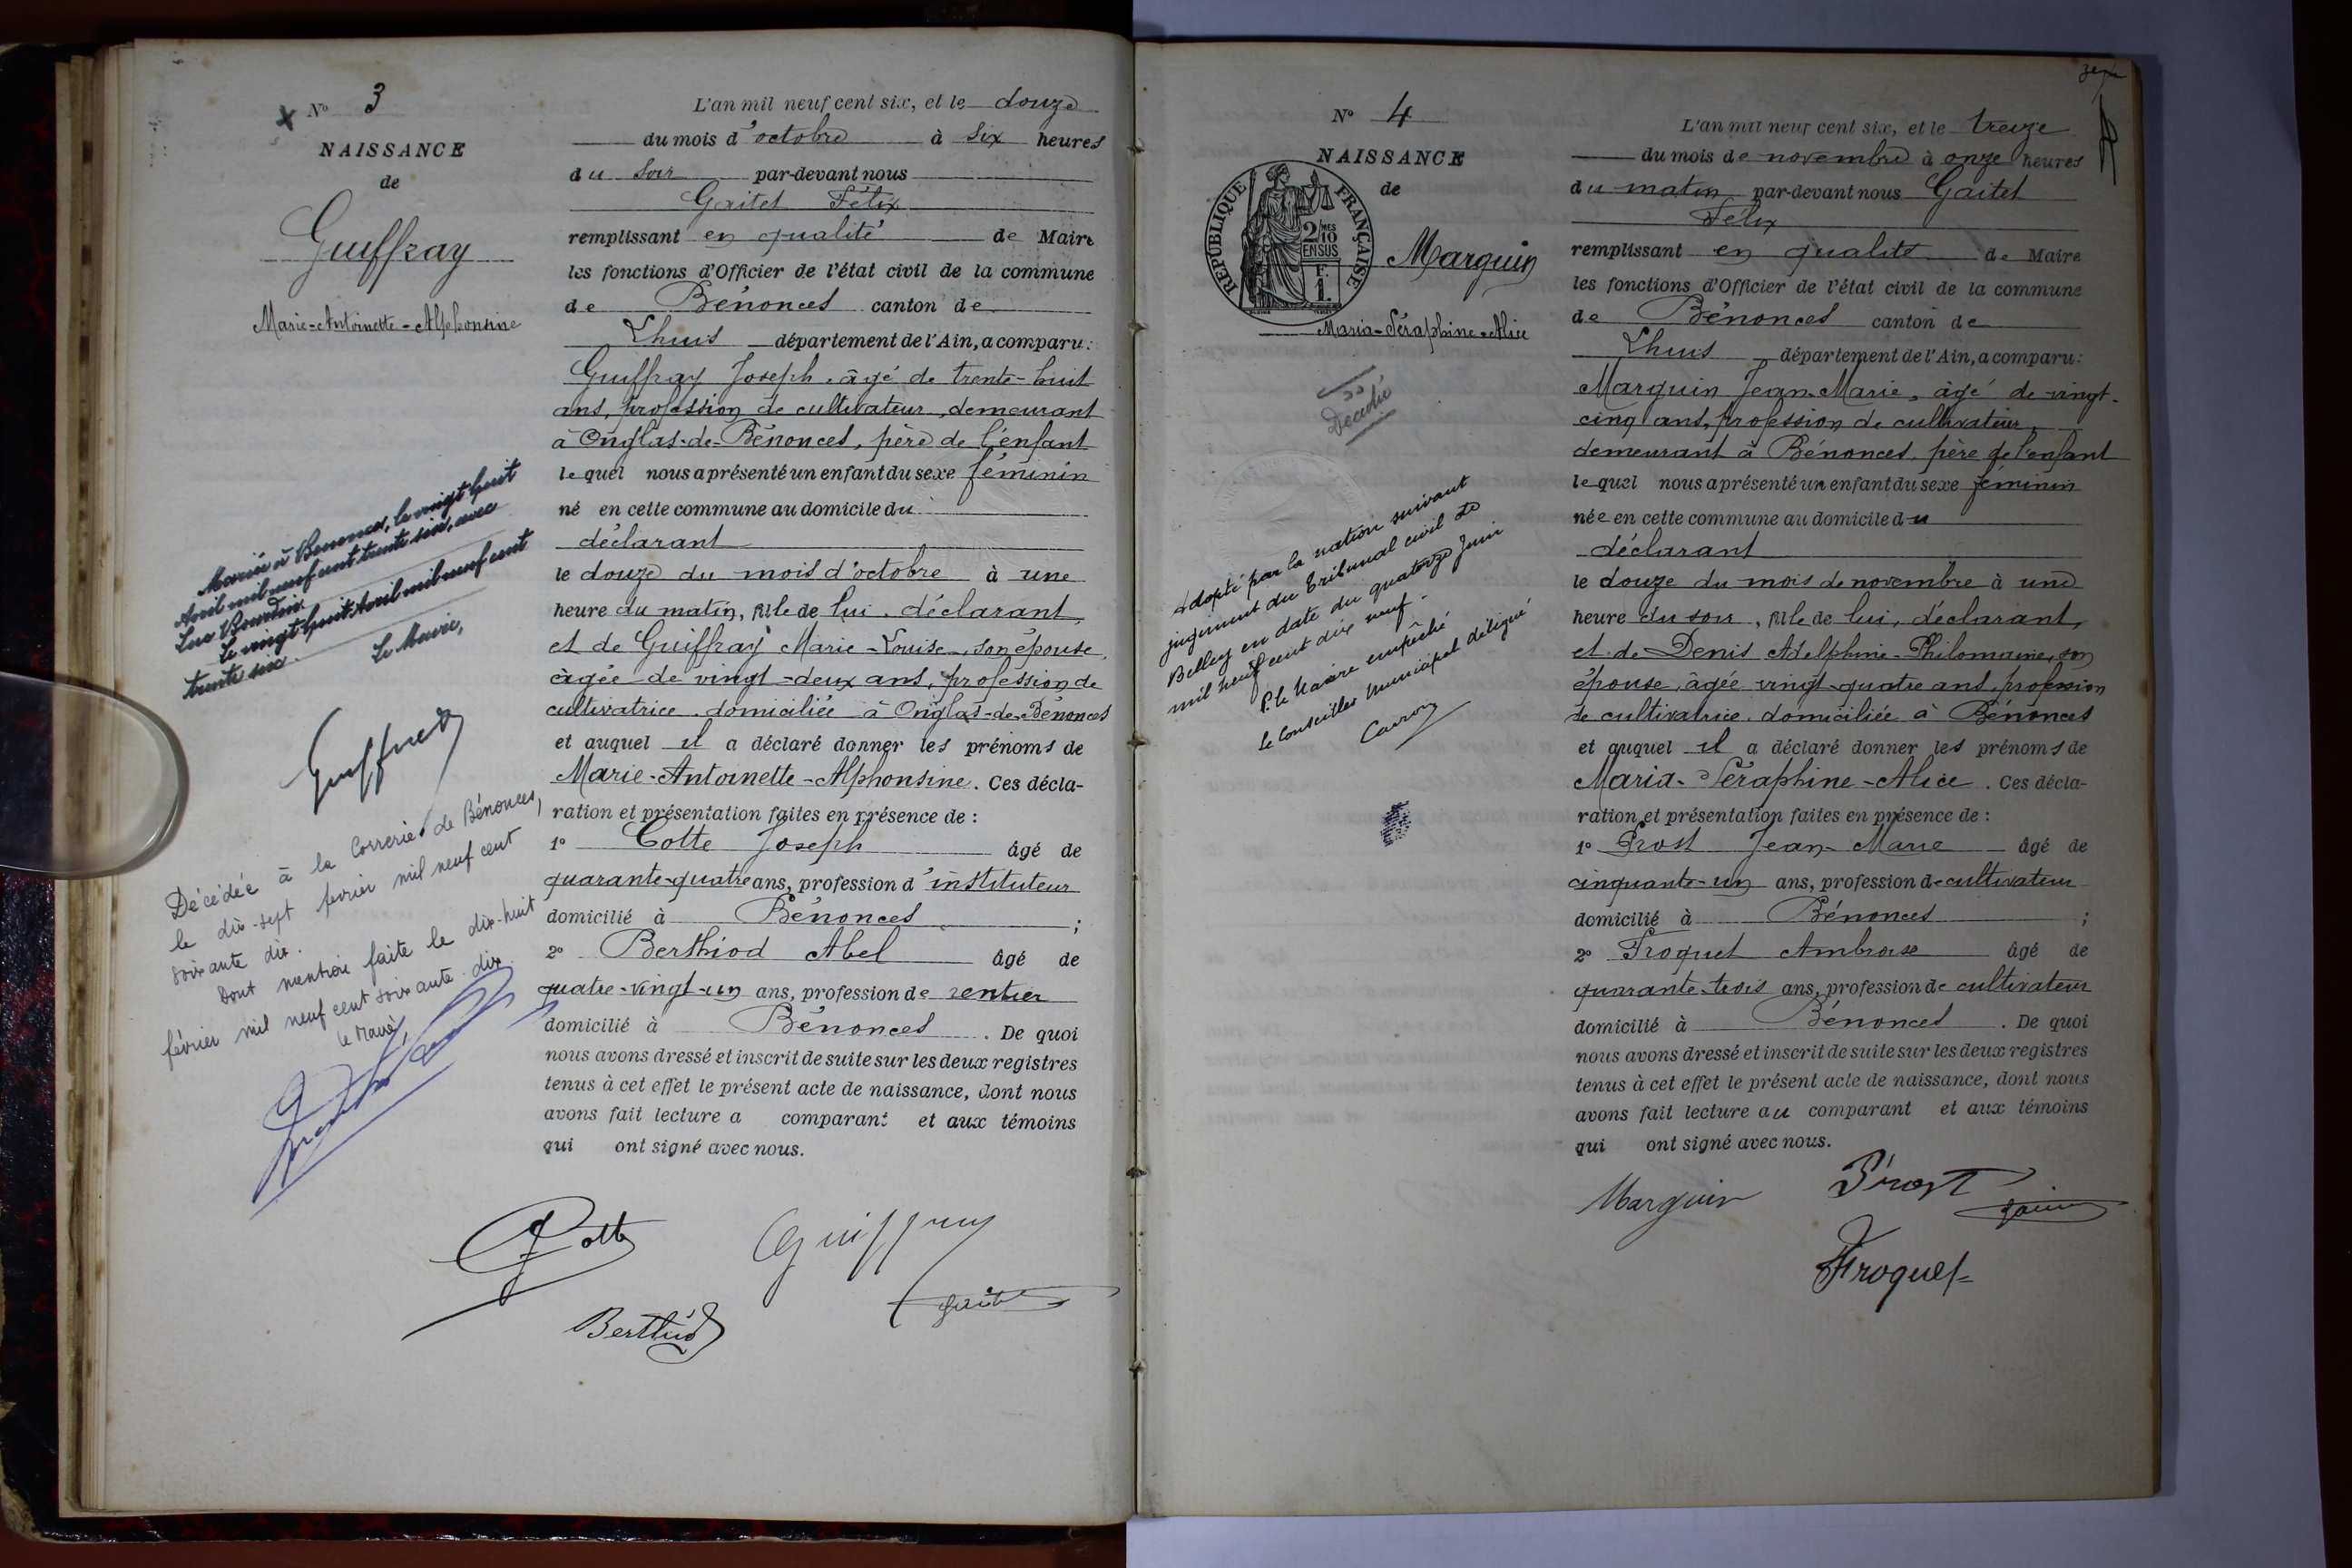 N° 3
NAISSANCE
de
Guiffray
Marie-Antoinette-Alphonsine
Mariée à Benonces, le vingt huit
Avril mil neuf cent trente six, avec
Luc Bourdin
Le vingt huit Avril mil neuf cent
trente six.
Le Maire,
Décédée à la Correrie de Bénonces,
le dix-sept février mil neuf cent
soixante dix.
Dont mention faite le dix-huit
février mil neuf cent soixante dix.
le Maire,
L'an mil neuf cent six, et le douze
du mois d'octobre à six heures
du soir par-devant nous
Gaitet Félix
remplissant en qualité de Maire
les fonctions d'Officier de l'état civil de la commune
de Bénonces canton de
Lhuis département de l'Ain, a comparu:
Guiffray Joseph, âgé de trente-huit
ans, profession de cultivateur, demeurant
à Onglas-de-Bénonces, père de l'enfant
lequel nous a présenté un enfant du sexe féminin
né en cette commune au domicile du
déclarant
le douze du mois d'octobre à une
heure du matin, fille de lui, déclarant,
et de Guiffray Marie-Louise, son épouse,
âgée de vingt-deux ans, profession de
cultivatrice, domiciliée à Onglas-de-Bénonces
et auquel il a déclaré donner les prénoms de
Marie-Antoinette-Alphonsine. Ces décla-
ration et présentation faites en présence de :
1° Cotte Joseph âgé de
quarante-quatre ans, profession d'instituteur
domicilié à Bénonces ;
2° Berthiod Abel âgé de
quatre-vingt-un ans, profession de rentier
domicilié à Bénonces . De quoi
nous avons dressé et inscrit de suite sur les deux registres
tenus à cet effet le présent acte de naissance, dont nous
avons fait lecture a comparant et aux témoins
qui ont signé avec nous.
Cotte Guiffray
Berthiod Gaitet
N° 4
NAISSANCE
de
RÉPUBLIQUE FRANÇAISE
2/10 MES
EN SUS
F.
1.
Marguin
Maria-Séraphine-Alice
Décédé
Adopté par la nation suivant
jugement du Tribunal civil de
Belley en date du quatorze Juin
mil neuf cent dix neuf.
P. le Maire empêché
Le Conseiller Municipal délégué
Carron
L'an mil neuf cent six, et le treize
du mois de novembre à onze heures
du matin par-devant nous Gaitet
Félix
remplissant en qualité de Maire
les fonctions d'Officier de l'état civil de la commune
de Bénonces canton de
Lhuis département de l'Ain, a comparu:
Marguin Jean-Marie, âgé de vingt-
cinq ans, profession de cultivateur,
demeurant à Bénonces, père de l'enfant
lequel nous a présenté un enfant du sexe féminin
née en cette commune au domicile du
déclarant
le douze du mois de novembre à une
heure du soir, fille de lui, déclarant,
et de Denis Adelphine-Philomaine, son
épouse, âgée vingt-quatre ans, profession
de cultivatrice, domiciliée à Bénonces
et auquel il a déclaré donner les prénoms de
Maria-Séraphine-Alice. Ces décla-
ration et présentation faites en présence de :
1° Prost Jean-Marie âgé de
cinquante-un ans, profession de cultivateur
domicilié à Bénonces ;
2° Froquet Ambroise âgé de
quarante-trois ans, profession de cultivateur
domicilié à Bénonces . De quoi
nous avons dressé et inscrit de suite sur les deux registres
tenus à cet effet le présent acte de naissance, dont nous
avons fait lecture au comparant et aux témoins
qui ont signé avec nous.
Marguin Prost Gaitet
Froquet